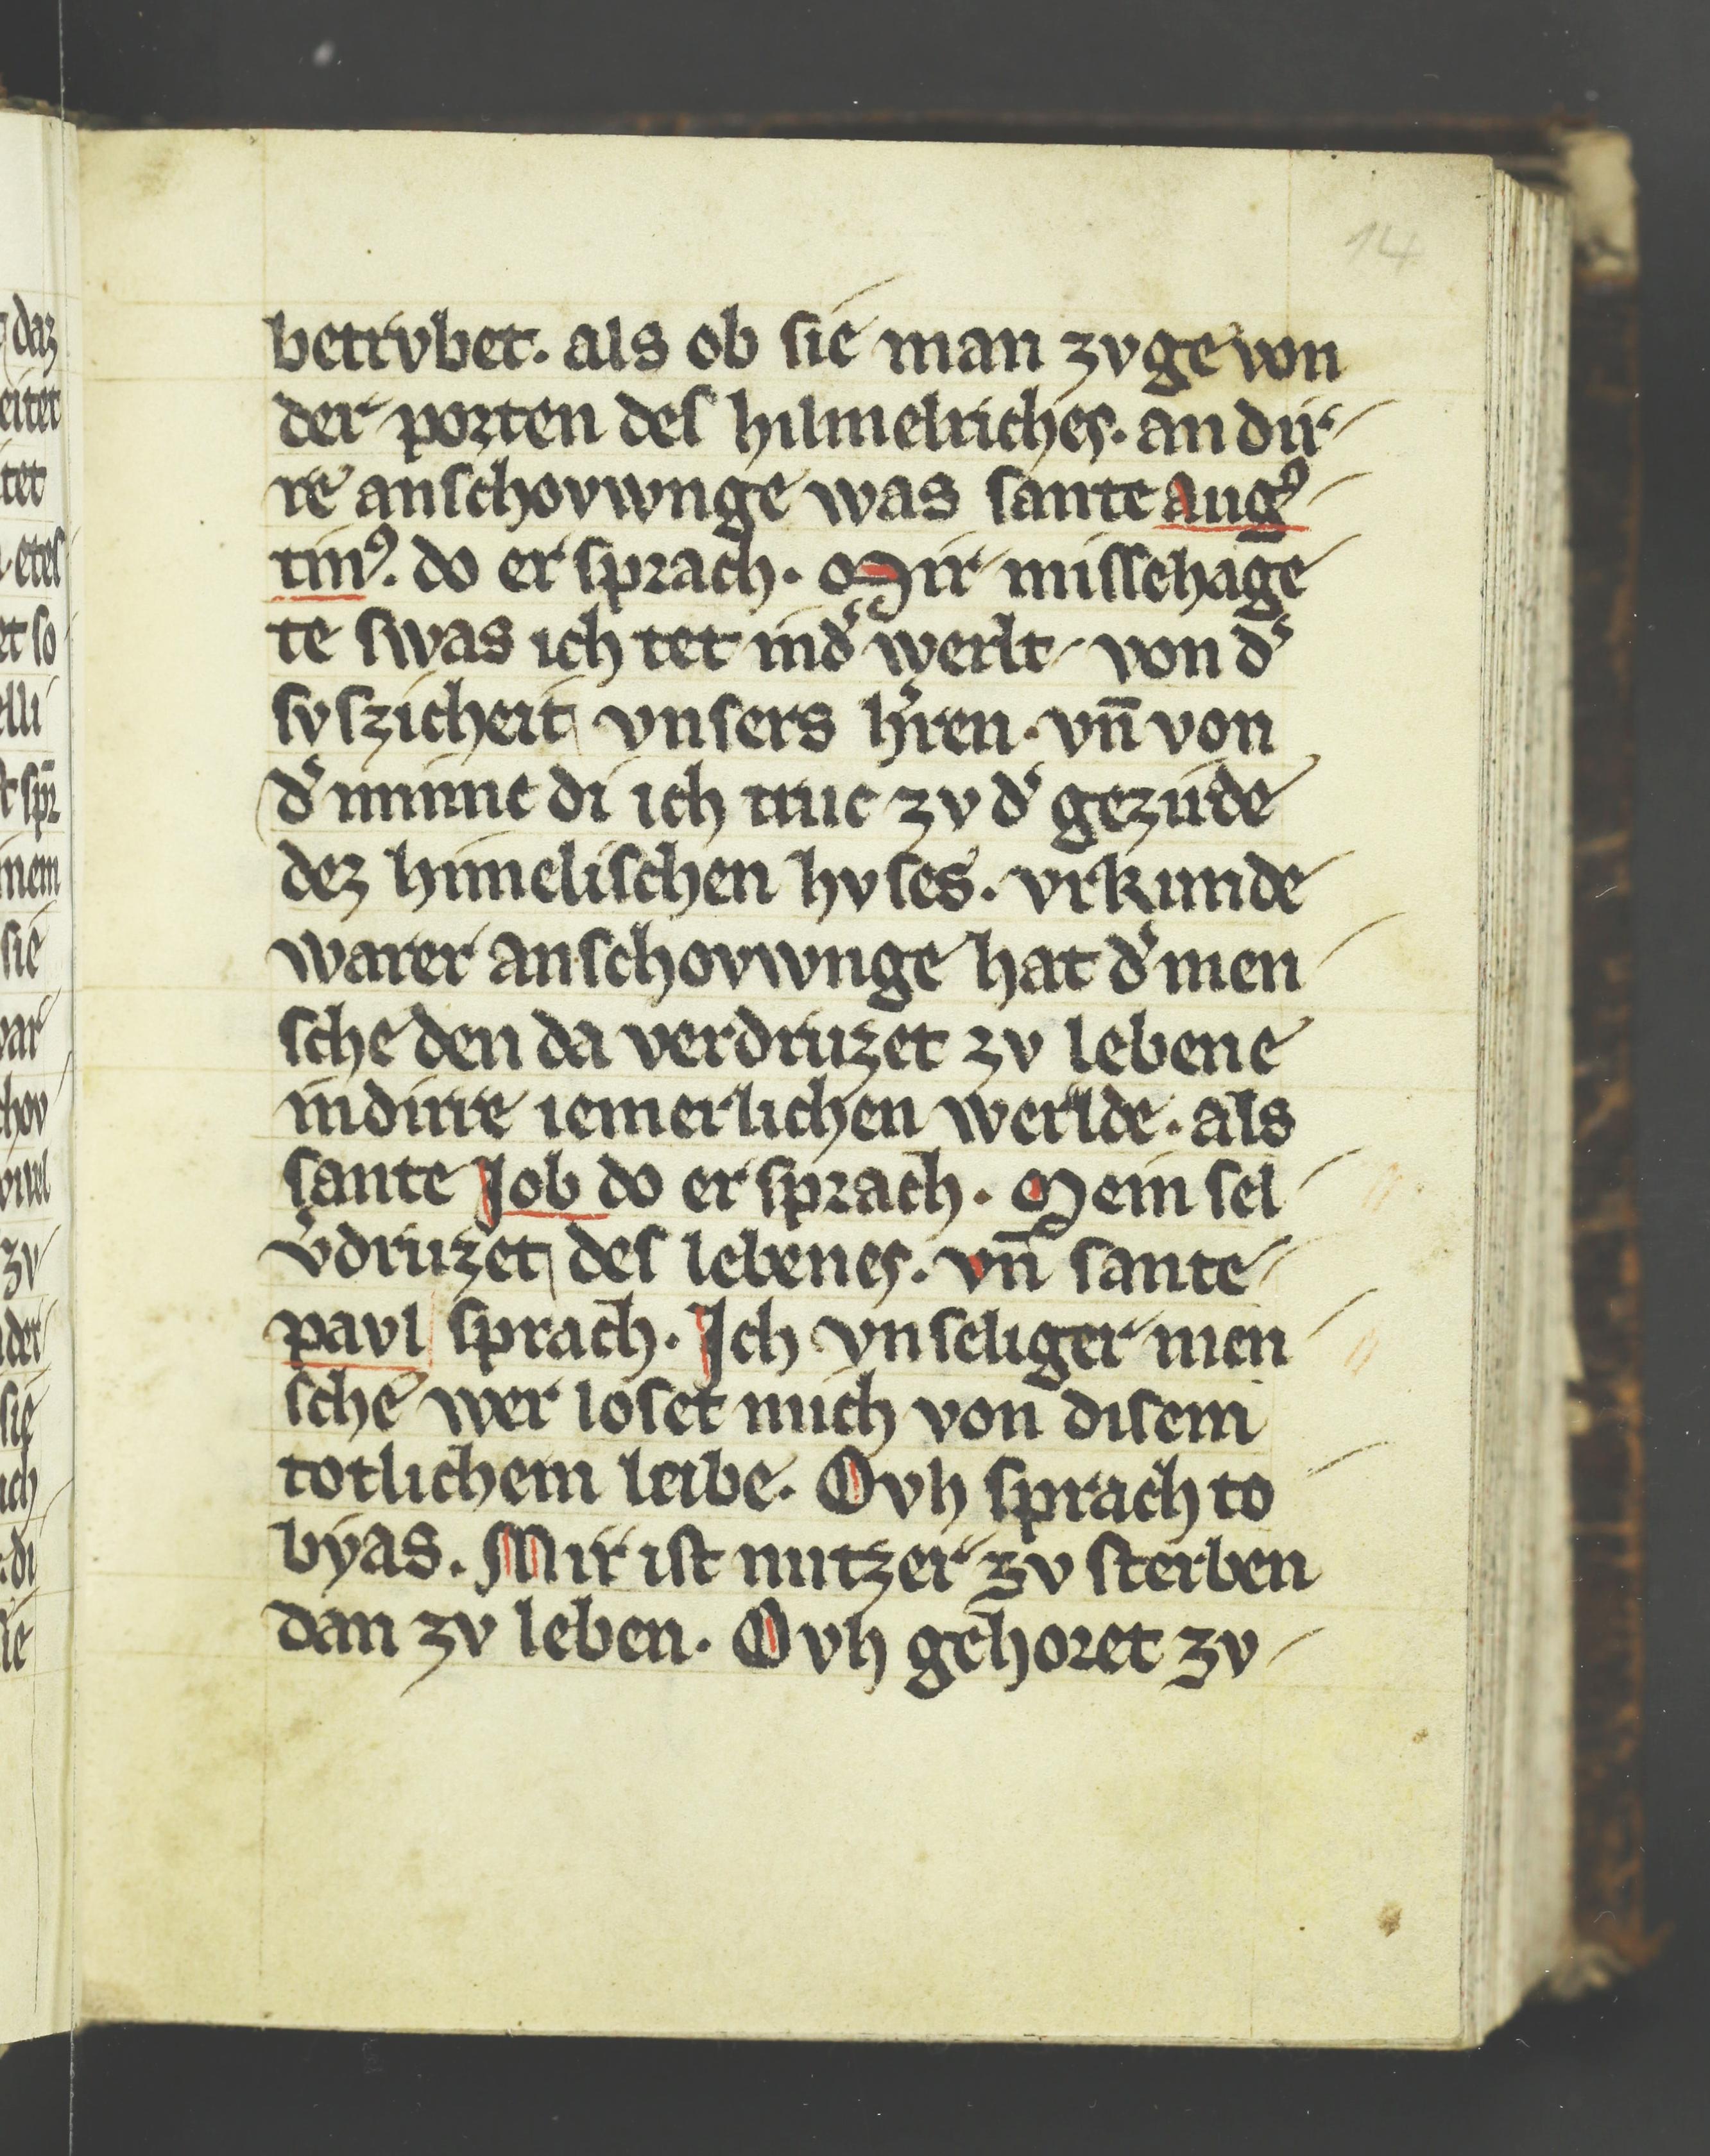 14
betrvbet. als ob sie man zvge von
der porten des hilmelriches. an dir
re anschovwnge was sante aug9
tin9. do er sprach. Mir missehage
te swas ich tet in d͛ werlt von d͛
svszicheit vnsers h͛ren. vn̄ von
d͛ minne di ich truc zv d͛ gezirde
dez himelischen hvses. vrkunde
warer anschovwnge hat d͛ men
sche den da verdruzet zv lebene
in dirre iemerlichen werlde. als
sante Job do er sprach. Mein sel
v͛druzet des lebenes. vn̄ sante
pavl sprach. Ich vnseliger men
sche wer loset mich von disem
totlichem leibe. Ovh sprach to
byas. Mir ist nutzer zv sterben
dan zv leben. Ovh gehoret zv